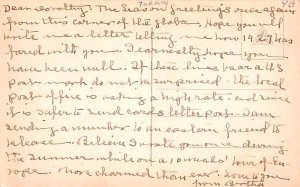 Dear Dorothy: The Season's Greetings once again
from this corner of the globe. Hope you'll
write me a letter telling how 1927 has
fared with you. I earnestly hope you
have been well. If these lines bear a U.S
post-mark do not be surprised. The local
post-office is asking a high rate and since
it is safer to send cards letter post I am
sending a number to an eastern friend to
release. Believe I wrote you once during
the summer while on a 10 weeks' tour of Eu-
rope. More charmed than ever. Love to you
from Bertha